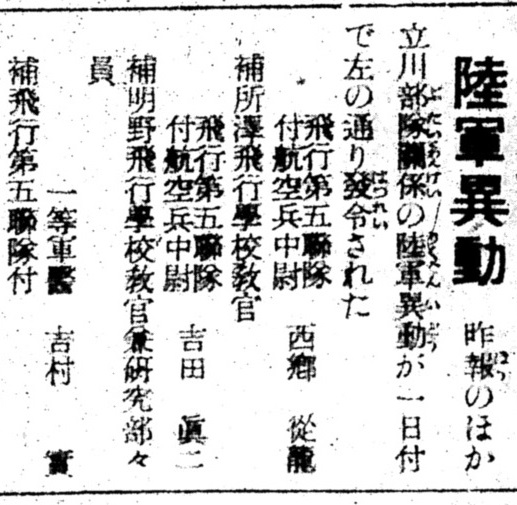 陸軍異動
昨報のほか
立川部隊關係の陸軍異動が一日付
で左の通り發令された
飛行第五聯隊
付航空兵中尉
西鄕 從龍
補所澤飛行學校敎官
飛行第五聯隊
付航空兵中尉
吉田 眞二
補明野飛行學校敎官兼硏究部々
員
一等軍醫 吉村 實
補飛行第五聯隊付